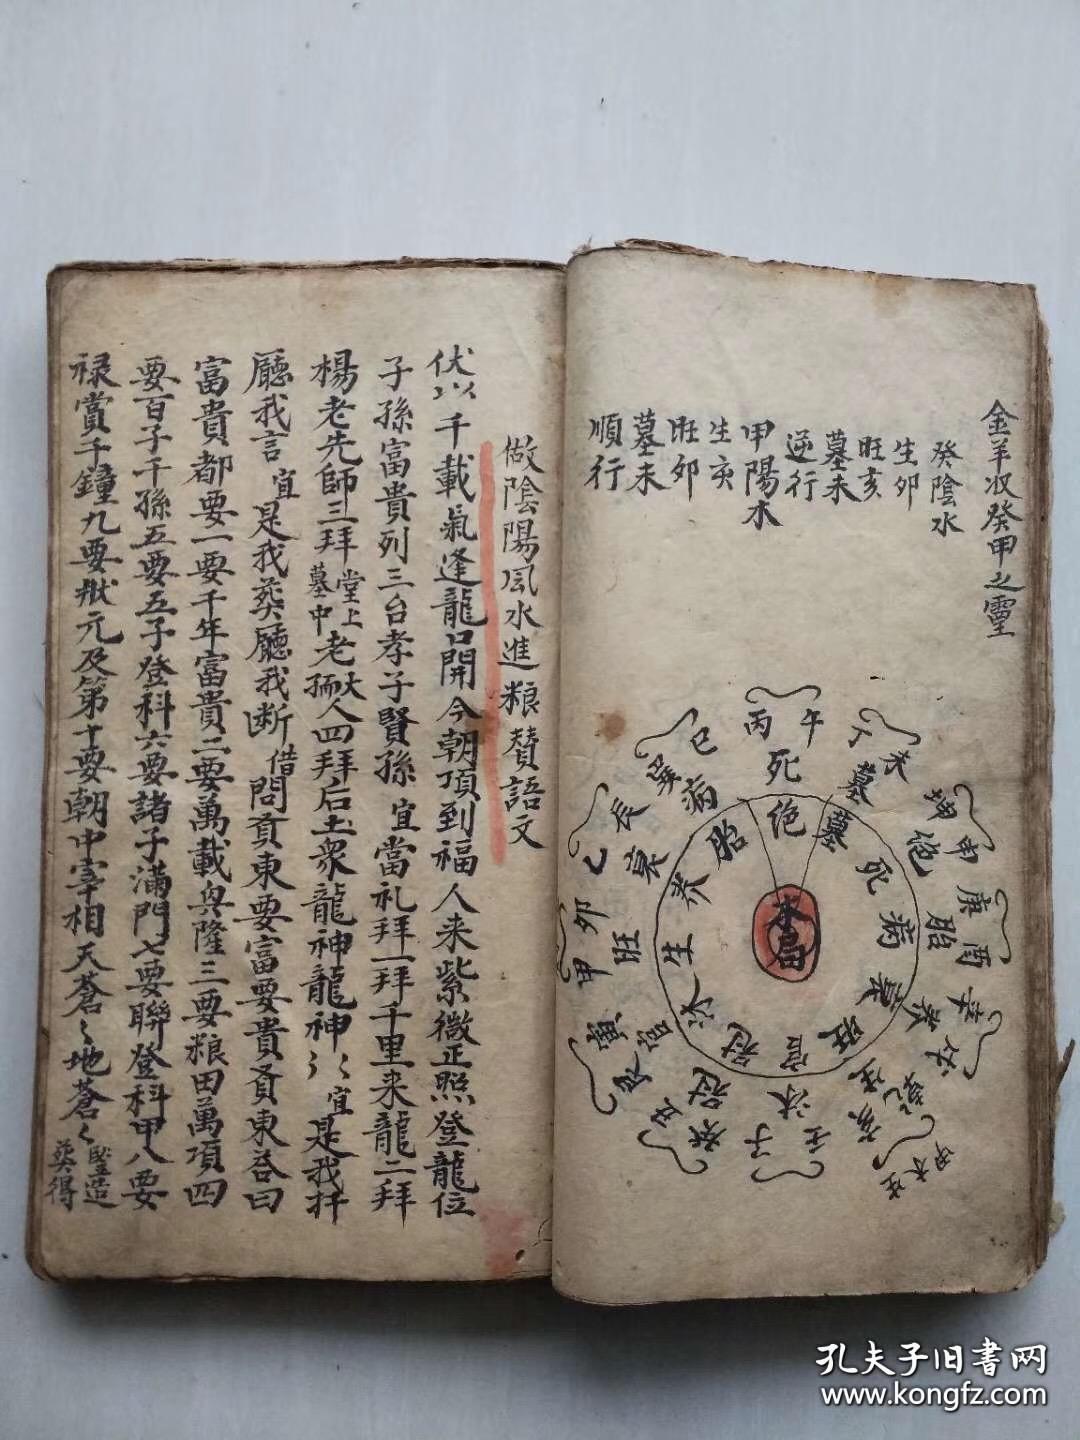 金羊收癸甲之靈
癸陰水
生卯
旺亥
墓未
逆行
甲陽木
生亥
旺卯
墓未
順行
丙午
丁未
坤申
庚酉
辛戌
乾亥
壬子
癸丑
艮寅
甲卯
乙辰
巽巳
死
墓
絕
胎
養
生
沐
冠
官
旺
衰
病
絕
墓
死
病
衰
旺
官
冠
沐
生
養
胎
水局
做陰陽風水進粮賛語文
伏以千載氣逢龍口開今朝項到福人来紫微正照登龍位
子孫富貴列三台孝子賢孫宜當礼拜一拜千里来龍二拜
楊老先師三拜堂上墓中老大孺人四拜后土衆龍神龍神〻宜是我扦
廳我言宜是我葵廳我断借問賁東要富要貴賁東荅曰
富貴都要一要千年富貴二要萬載興隆三要粮田萬項四
要百子千孫五要五子登科六要諸子滿門七要聯登科甲八要
禄賞千鐘九要狀元及第十要朝中宰相天蒼〻地蒼〻竪造葵得
孔夫子旧書网
www.kongfz.com